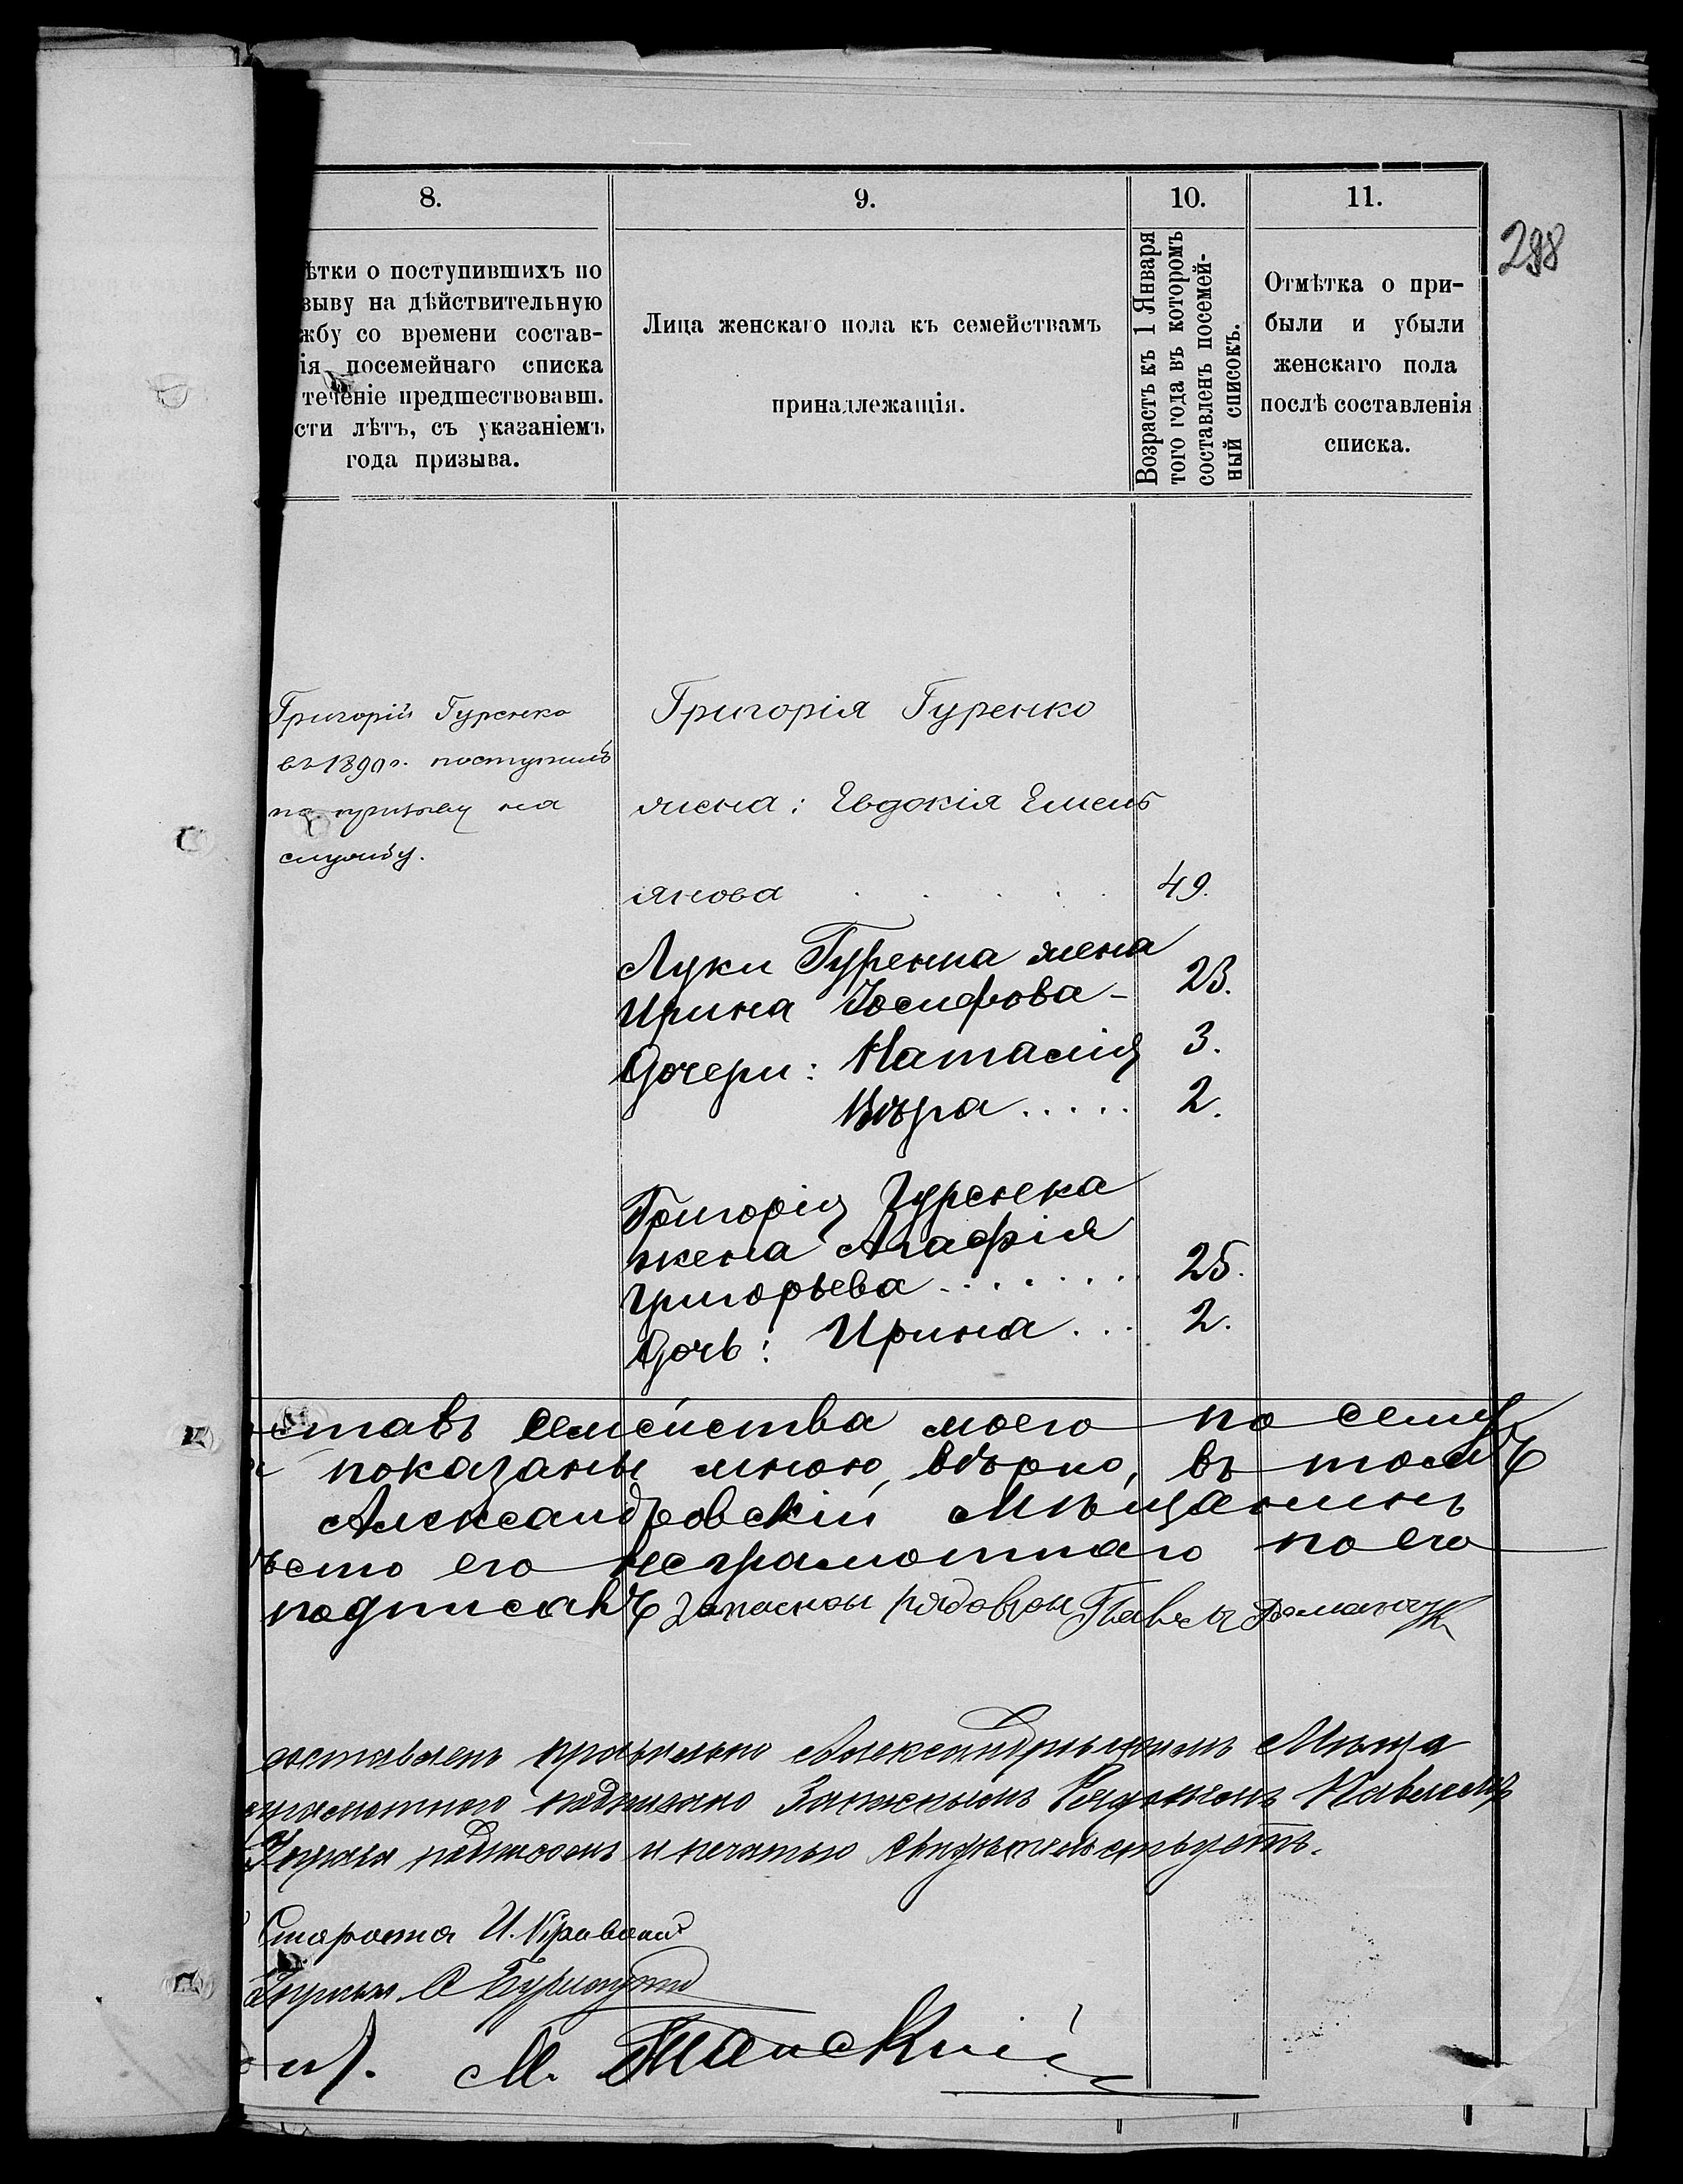 298
8.
ѣтки о поступившихъ по
зыву на дѣйствительную
жбу со времени состав-
ія посемейнаго списка
теченіе предшествовавш.
сти лѣтъ, съ указаніемъ
года призыва.
9.
Лица женскаго пола къ семействамъ
принадлежащія.
10.
Возрастъ къ 1 Января
того года въ которомъ
составленъ посемей-
ный списокъ.
11.
Отмѣтка о при-
были и убыли
женскаго пола
послѣ составленія
списка.
Григорій Гуренко
въ 1890 г. поступилъ
по призыву на
службу.
Григорія Гуренко
жена: Евдокія Емель
янова 49.
Луки Гуренка жена
Ирина Іосифова - 23.
Дочери: Наталія 3.
Вѣра..... 2.
Григорія Гуренека
жена Агафія
Григорьева....... 25.
Дочь: Ирина... 2.
ставъ семейства моего по сему
показаны мною вѣрно, въ томъ
Александровскій Мѣщанинъ
ѣсто его неграмотнаго по его
подписалъ запасной рядовой Павелъ
составленъ правильно Мѣща
подписано Запаснымъ Рядовымъ Павломъ
Управа подписомъ и печатью свидѣтельствуетъ.
Староста И.
М.